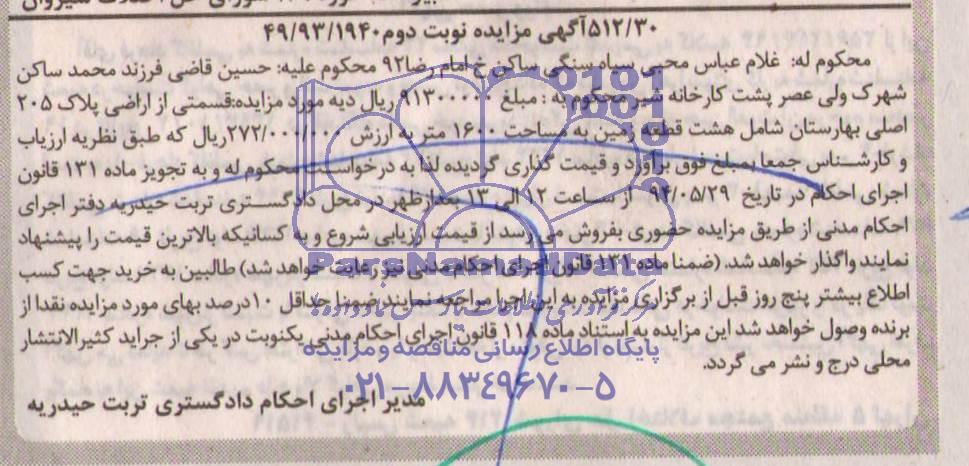 ۵۱۲/۳۰آگهی مزایده نوبت دوم۴۹/۹۳/۱۹۴۰
محکوم له: غلام عباس محبی سیاه سنگی ساکن خ امام رضا۹۲ محکوم علیه: حسین قاضی فرزند محمد ساکن
شهرک ولی عصر پشت کارخانه شیر محکوم به : مبلغ ۹۱۳۰۰۰۰۰ ریال دیه مورد مزایده:قسمتی از اراضی پلاک ۲۰۵
اصلی بهارستان شامل هشت قطعه زمین به مساحت ۱۶۰۰ متر به ارزش ۲۷۲/۰۰۰/۰۰۰ریال که طبق نظریه ارزیاب
و کارشناس جمعا بمبلغ فوق برآورد و قیمت گذاری گردیده لذا به درخواست محکوم له و به تجویز ماده ۱۳۱ قانون
اجرای احکام در تاریخ ۹۴/۰۵/۲۹ از ساعت ۱۲ الی ۱۳ بعدازظهر در محل دادگستری تربت حیدریه دفتر اجرای
احکام مدنی از طریق مزایده حضوری بفروش می رسد از قیمت ارزیابی شروع و به کسانیکه بالاترین قیمت را پیشنهاد
نمایند واگذار خواهد شد. (ضمنا ماده ۱۳۱ قانون اجرای احکام مدنی نیز رعایت خواهد شد) طالبین به خرید جهت کسب
اطلاع بیشتر پنج روز قبل از برگزاری مزایده به این اجرا مراجعه نمایند ضمنا حداقل ۱۰درصد بهای مورد مزایده نقدا از
برنده وصول خواهد شد این مزایده به استناد ماده ۱۱۸ قانون اجرای احکام مدنی یکنوبت در یکی از جراید کثیرالانتشار
محلی درج و نشر می گردد.
مدیر اجرای احکام دادگستری تربت حیدریه
ParsNamadData
پایگاه اطلاع رسانی مناقصه و مزایده
۰۲۱-۸۸۳۴۹۶۷۰-۵